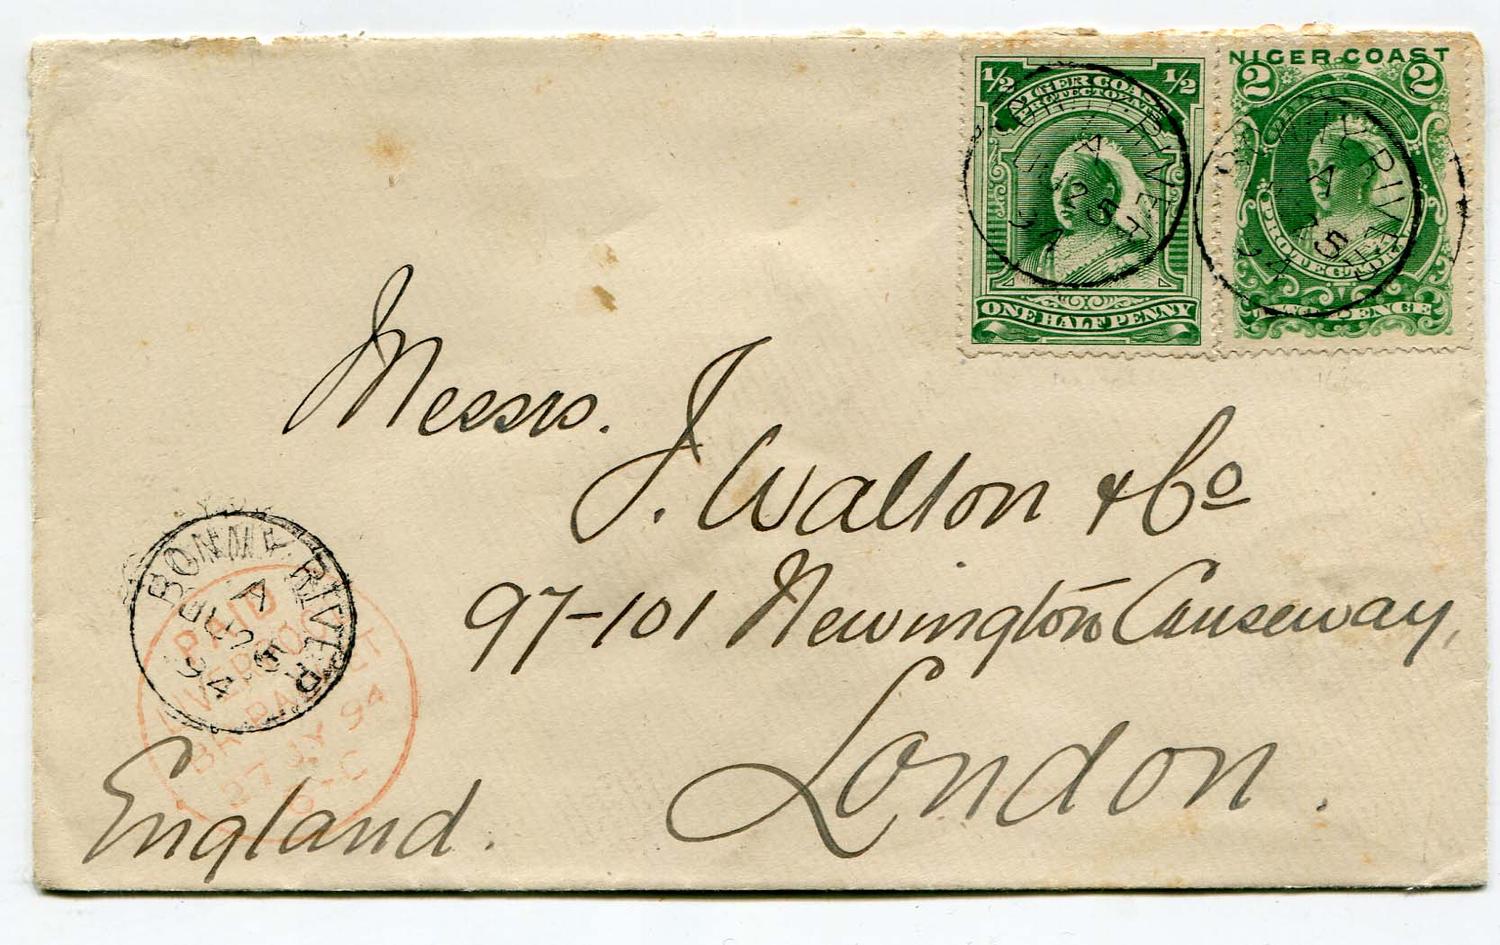 1/2 NIGER COAST 1/2
PROTECTORATE
ONE HALF PENNY
NIGER COAST
2 2
PROTECTORATE
PENCE
BONNY RIVER
A
25
94
BONNY RIVER
A
25
94
Messrs.
J. Walton & Co
97-101 Newington Causeway,
London.
England.
BONNY RIVER
A
25
94
PAID
LIVERPOOL
BR. PACKET
27 JY 94